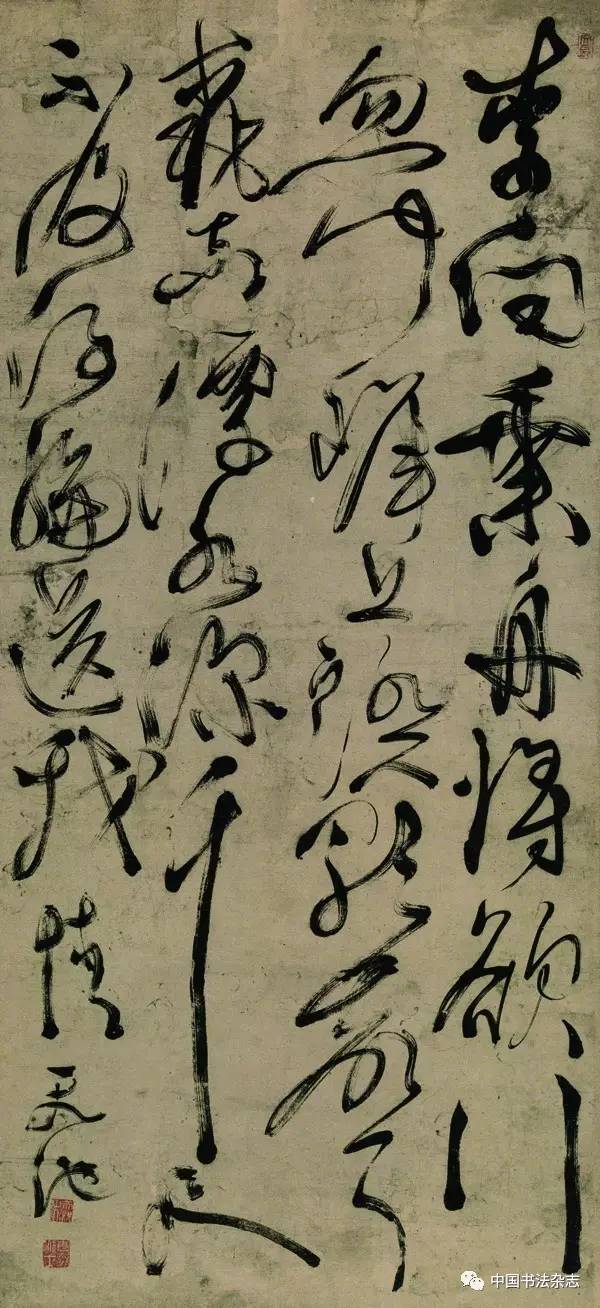 李白乘舟將欲行
忽聞上踏歌聲
桃花潭水深千尺
不及汪倫送我情
中国书法杂志